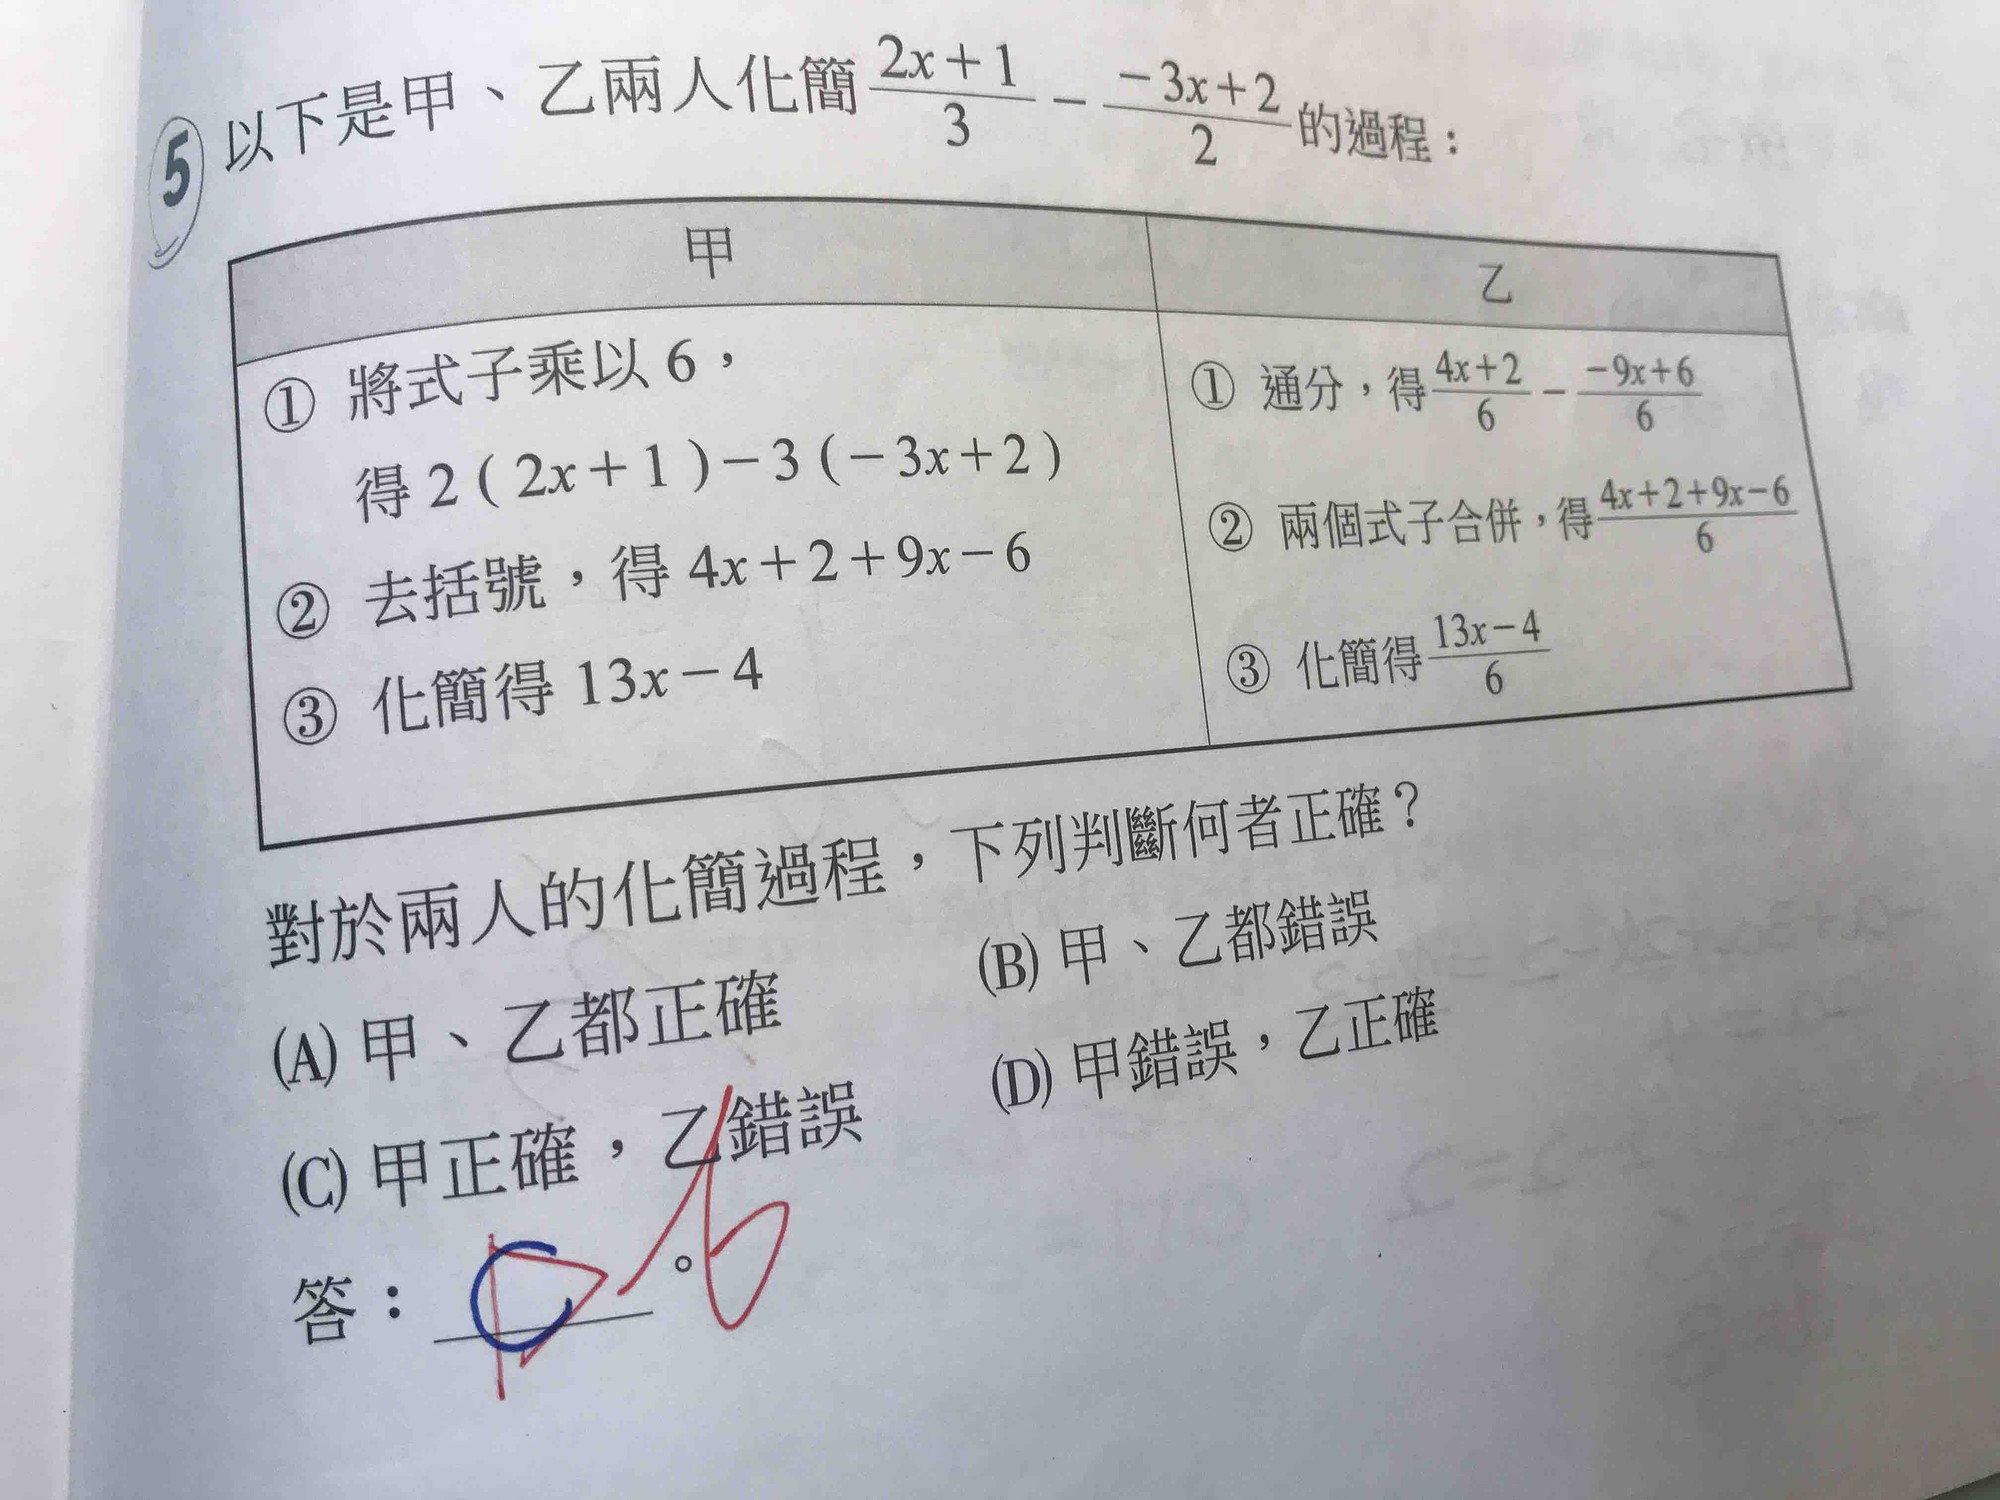 5 以下是甲、乙兩人化簡 \frac{2x+1}{3} - \frac{-3x+2}{2} 的過程：
甲
乙
① 將式子乘以 6，
得 2(2x+1)-3(-3x+2)
② 去括號，得 4x+2+9x-6
③ 化簡得 13x-4
① 通分，得 \frac{4x+2}{6} - \frac{-9x+6}{6}
② 兩個式子合併，得 \frac{4x+2+9x-6}{6}
③ 化簡得 \frac{13x-4}{6}
對於兩人的化簡過程，下列判斷何者正確？
(A) 甲、乙都正確 (B) 甲、乙都錯誤
(C) 甲正確，乙錯誤 (D) 甲錯誤，乙正確
答：C D 。